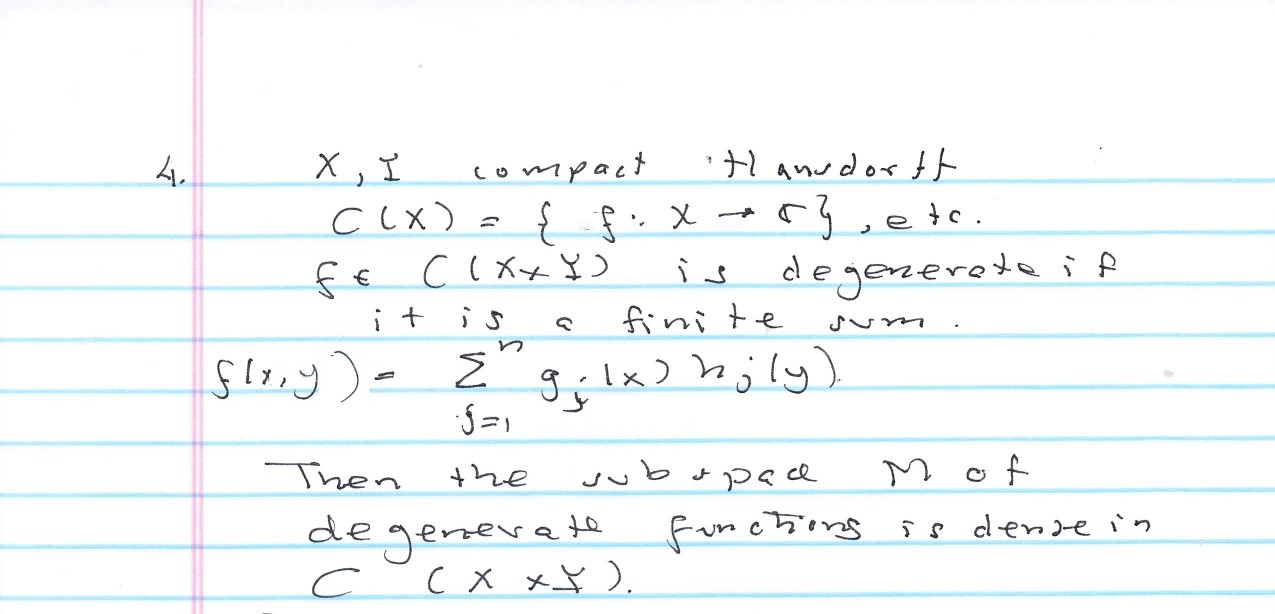 4. X, Y compact Hausdorff
C(X) = { f: X → ℂ}, etc.
f ∈ C(X×Y) is degenerate if
it is a finite sum.
f(x,y) = Σ^n_{j=1} g_j(x) h_j(y).
Then the subspace M of
degenerate functions is dense in
C (X × Y).